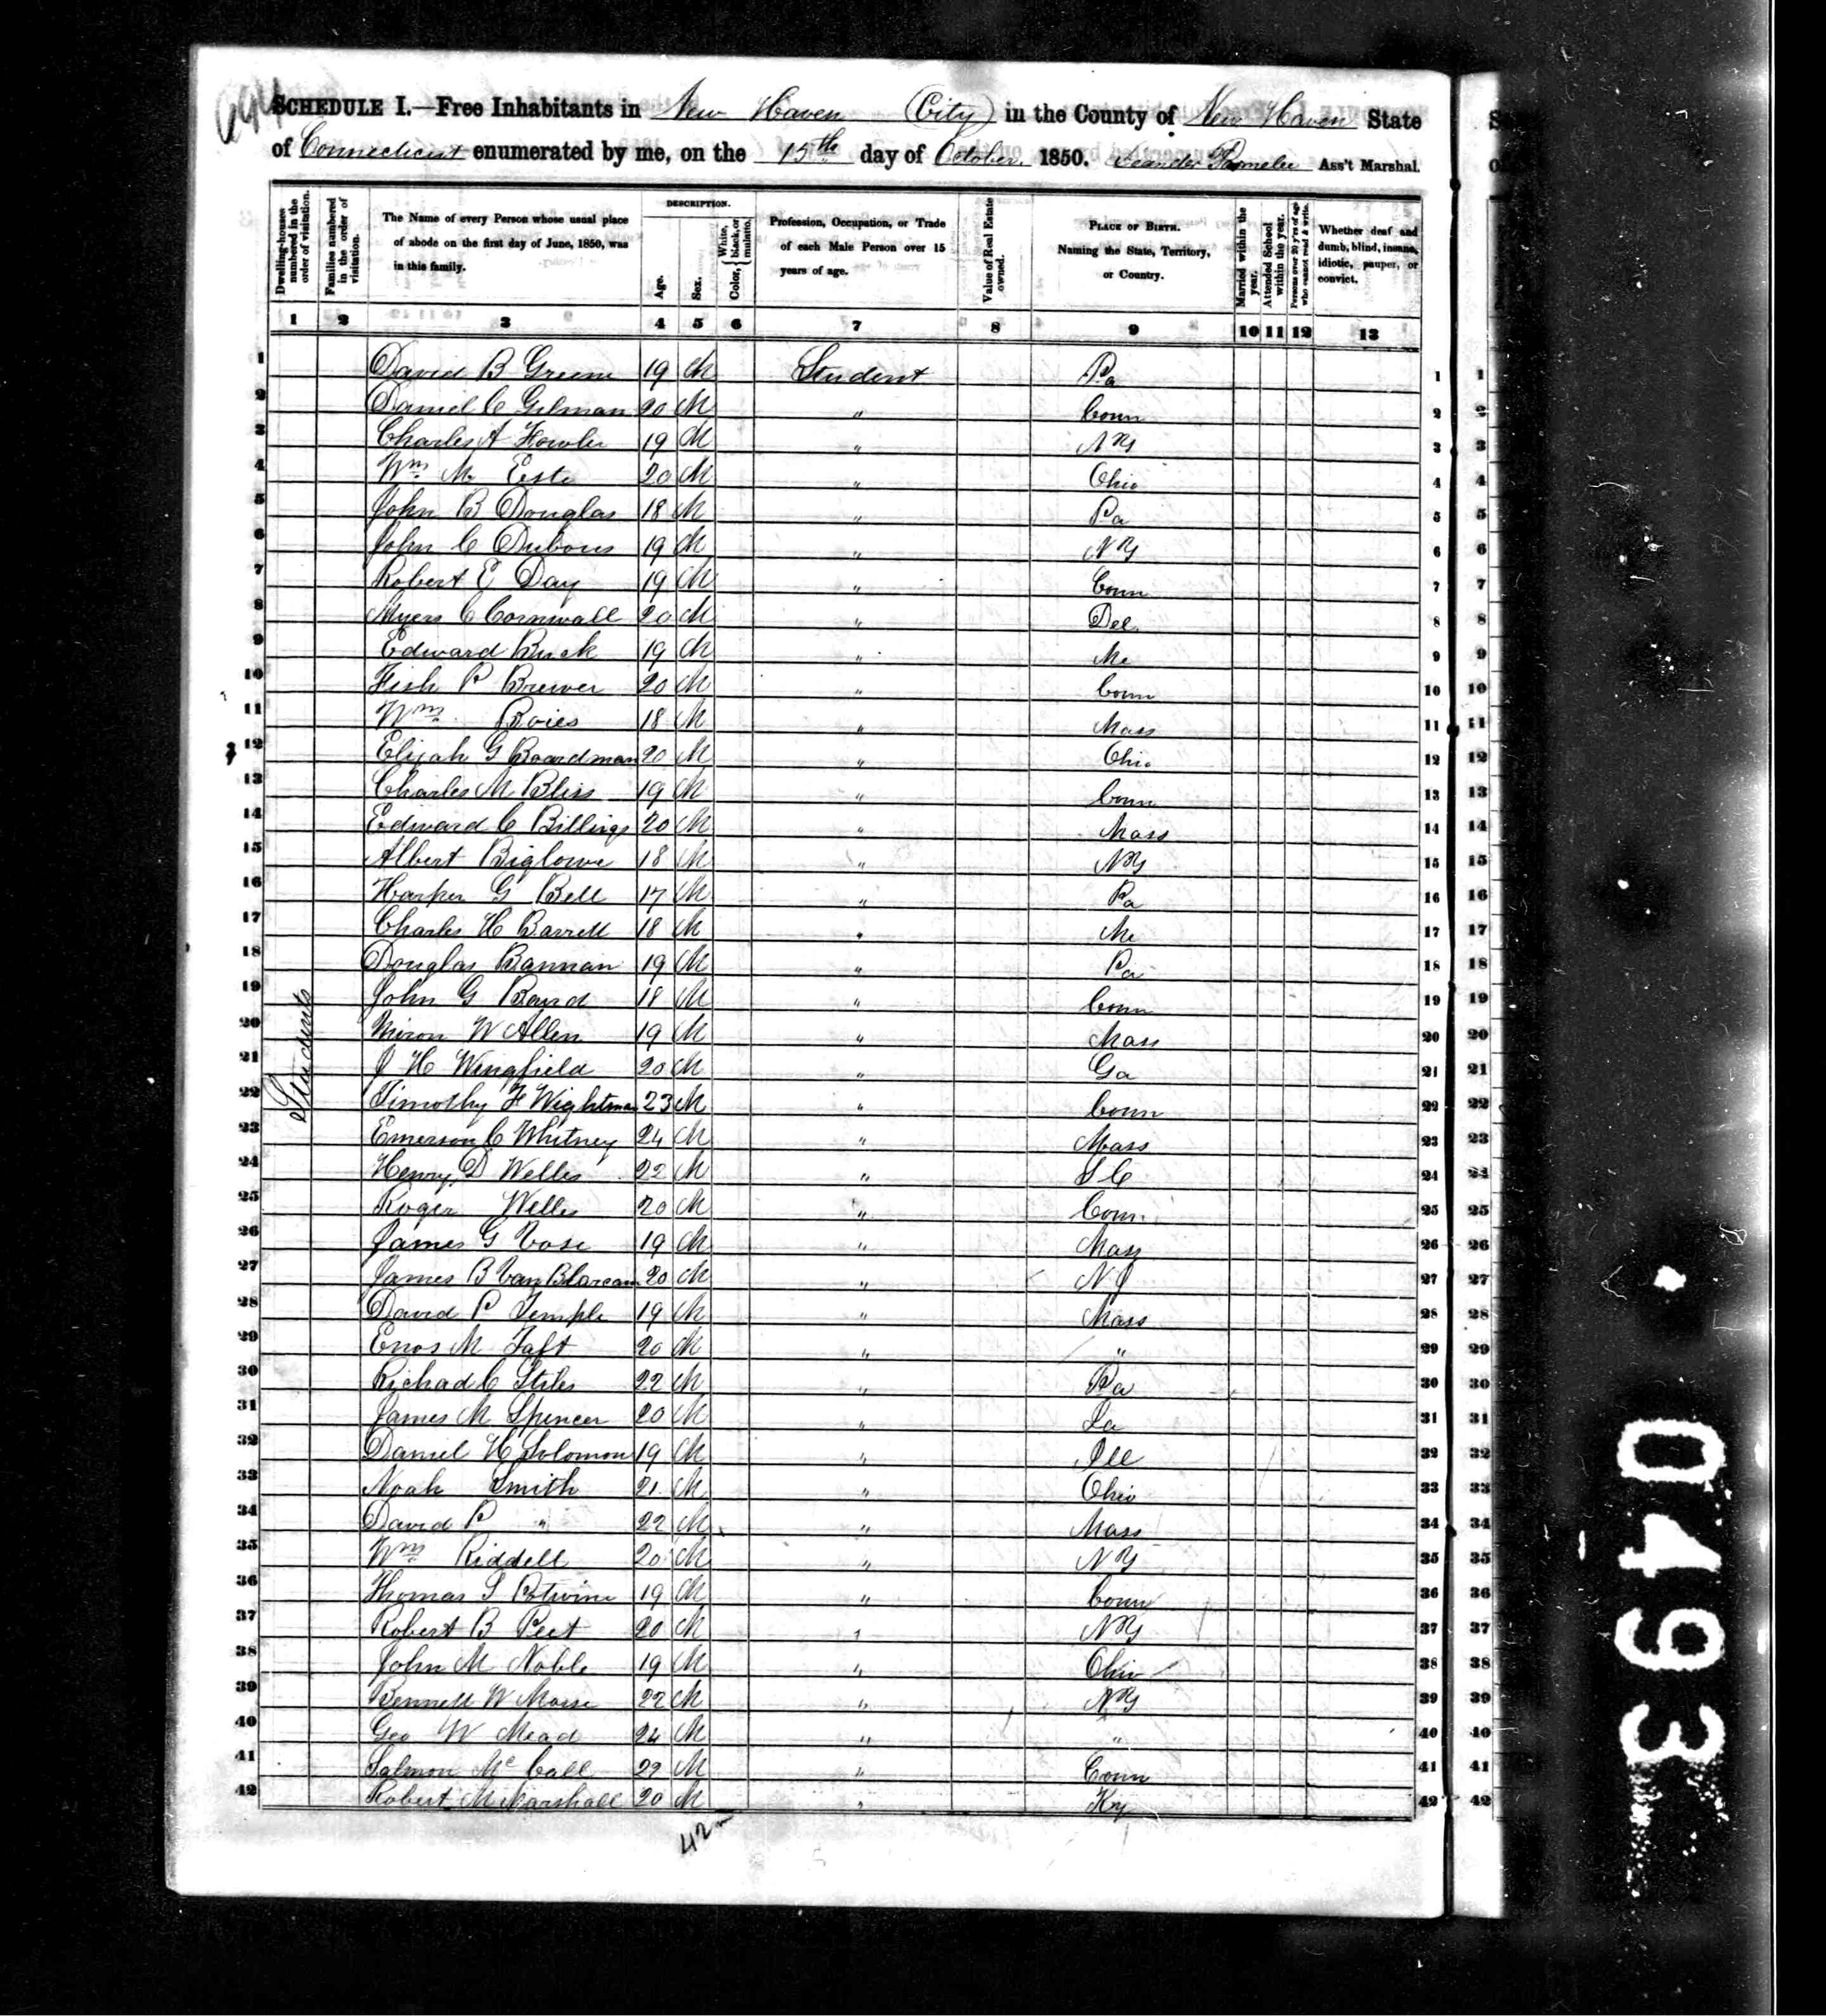 694
SCHEDULE I.—Free Inhabitants in New Haven (City) in the County of New Haven State
of Connecticut enumerated by me, on the 15th day of October 1850. Leander Parmelee Ass't Marshal.
Dwelling-houses numbered in the order of visitation.
Families numbered in the order of visitation.
The Name of every Person whose usual place of abode on the first day of June, 1850, was in this family.
DESCRIPTION.
Age.
Sex.
Color, { White, black, or mulatto.
Profession, Occupation, or Trade of each Male Person over 15 years of age.
Value of Real Estate owned.
PLACE OF BIRTH. Naming the State, Territory, or Country.
Married within the year.
Attended School within the year.
Persons over 20 y'rs of age who cannot read & write.
Whether deaf and dumb, blind, insane, idiotic, pauper, or convict.
1 2 3 4 5 6 7 8 9 10 11 12 13
1 David B Green 19 M Student Pa 1 1
2 Daniel C Gilman 20 M " Conn 2 2
3 Charles A Fowler 19 M " NY 3 3
4 Wm M Este 20 M " Ohio 4 4
5 John B Douglas 18 M " Pa 5 5
6 John C Dubois 19 M " NY 6 6
7 Robert E Day 19 M " Conn 7 7
8 Myers C Cornwall 20 M " Del 8 8
9 Edward Buck 19 M " Me 9 9
10 Fish P Brewer 20 M " Conn 10 10
11 Wm Boies 18 M " Mass 11 11
12 Elijah G Boardman 20 M " Ohio 12 12
13 Charles M Bliss 19 M " Conn 13 13
14 Edward C Billings 20 M " Mass 14 14
15 Albert Biglowe 18 M " NY 15 15
16 Harper G Bell 17 M " Pa 16 16
17 Charles H Barrett 18 M " Me 17 17
18 Douglas Bannan 19 M " Pa 18 18
19 John G Baird 18 M " Conn 19 19
20 Miron W Allen 19 M " Mass 20 20
21 J H Wingfield 20 M " Ga 21 21
Students
22 Timothy H Wightman 23 M " Conn 22 22
23 Emerson C Whitney 24 M " Mass 23 23
24 Henry D Welles 22 M " S C 24 24
25 Roger Welles 20 M " Conn 25 25
26 James G Vose 19 M " Mass 26 26
27 James B Van Blarcam 20 M " N J 27 27
28 David P Temple 19 M " Mass 28 28
29 Enos M Taft 20 M " " 29 29
30 Richad C Stiles 22 M " Pa 30 30
31 James M Spencer 20 M " La 31 31
32 Daniel H Solomon 19 M " Ill 32 32
33 Noah Smith 21 M " Ohio 33 33
34 David P " 22 M " Mass 34 34
35 Wm Riddell 20 M " NY 35 35
36 Thomas S Potwine 19 M " Conn 36 36
37 Robert B Peet 20 M " NY 37 37
38 John M Noble 19 M " Ohio 38 38
39 Bennett W Morse 22 M " NY 39 39
40 Geo W Mead 24 M " " 40 40
41 Salmon McCall 22 M " Conn 41 41
42 Robert M Marshall 20 M " Ky 42 42
42 m
0493